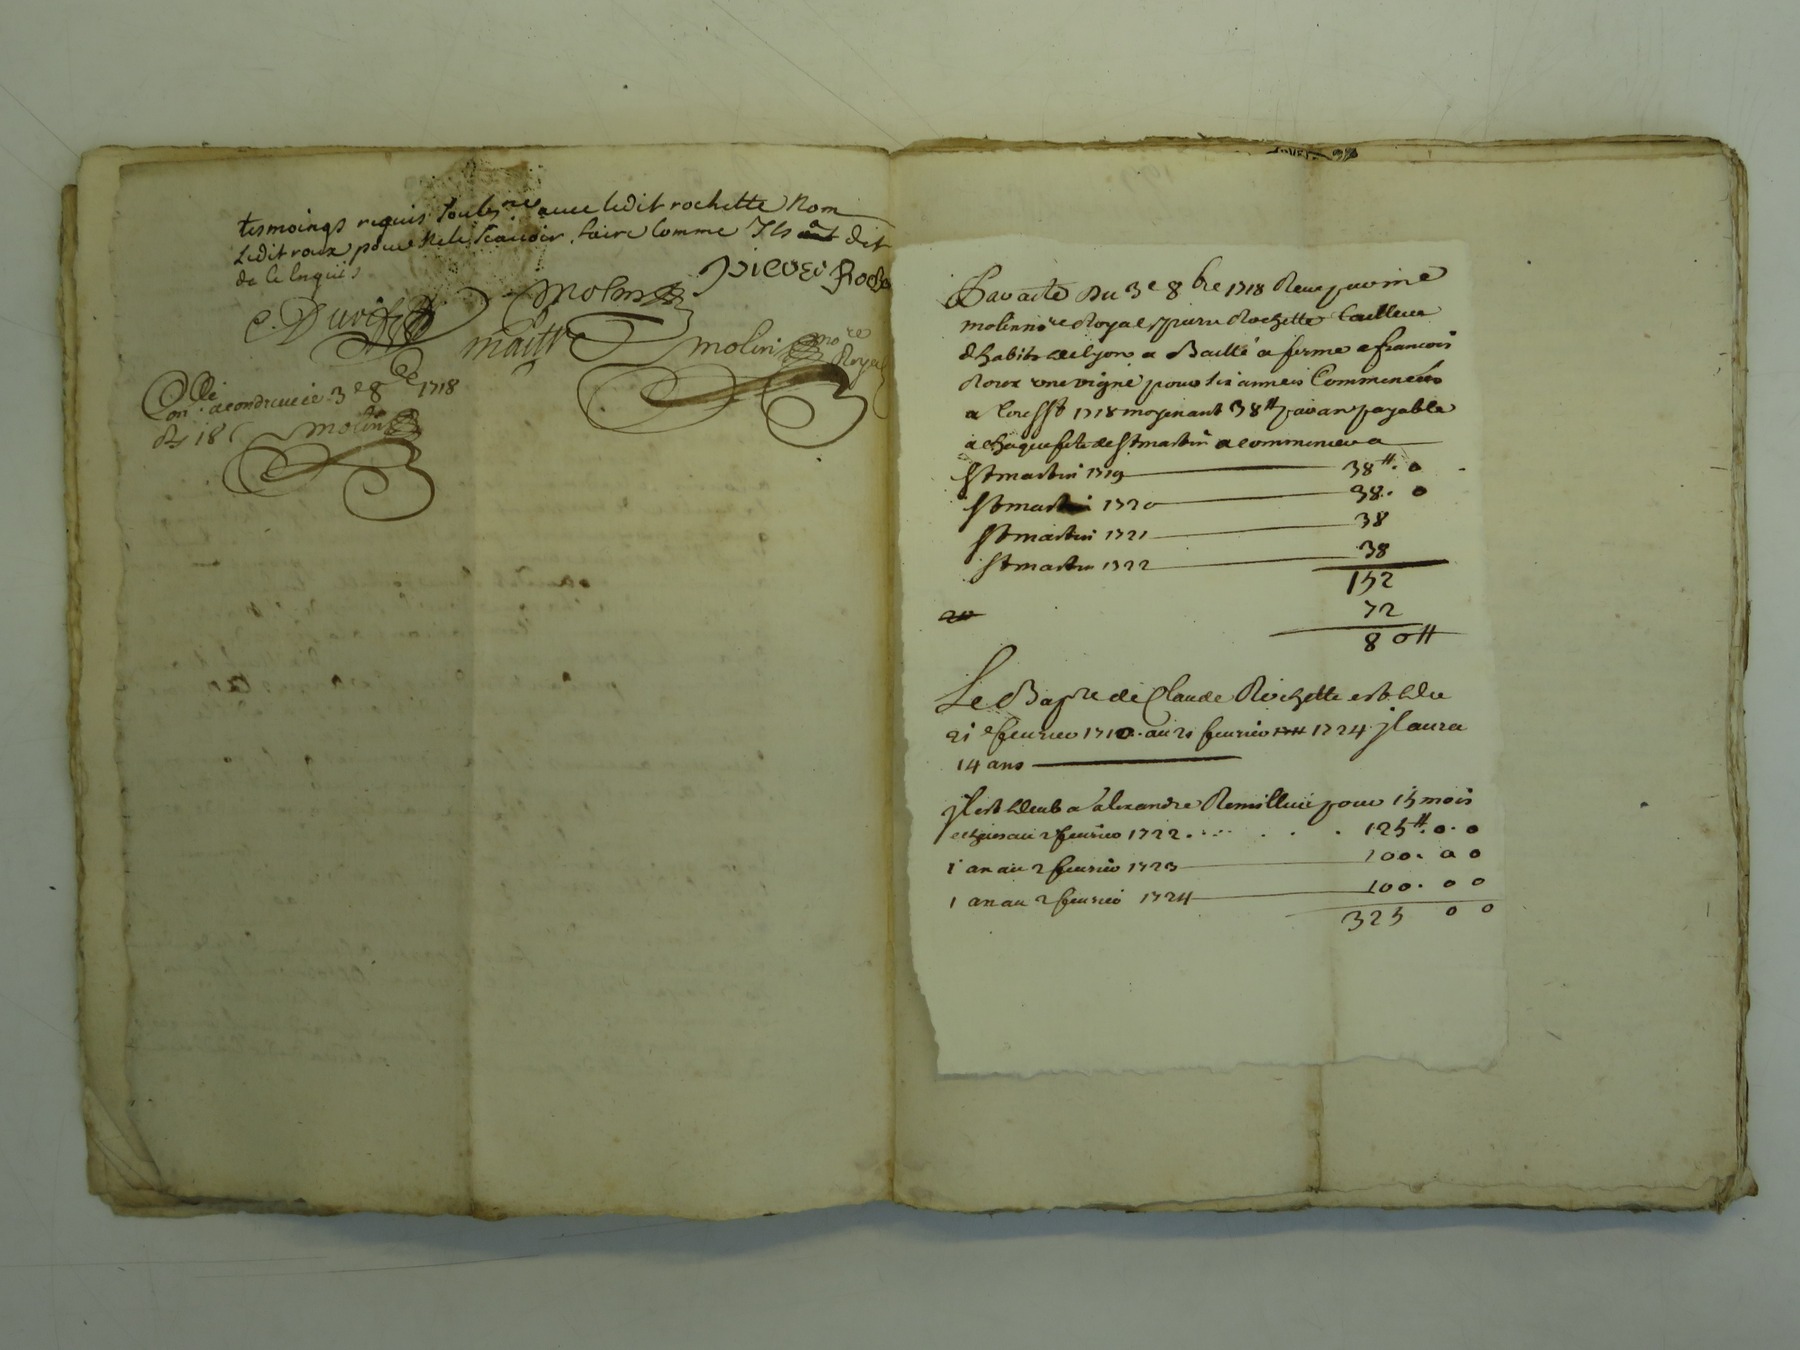 tesmoings requis soubsnés avec ledit rochette Non
Ledit roux pour ne le scavoir faire comme Ils ont dit
de ce enquis
pierre Roche
C. Duvif
molin
maitre
molin no.re Royal
Con.llé a condrieu ce 3e 8bre 1718
Rs 18 s
molin
Par acte Du 3e 8bre 1718 Receu par me
molin no.re Royal pierre Rochette tailleur
d'habits de lyon a Baillé a ferme a francois
Roux une vigne pour six années Commencées
a 1718 moyenant 38ᵗᵗ par an payable
a chaque fete de st martin a commencer a
st martin 1719 38ᵗᵗ. 0
st martin 1720 38. 0
st martin 1721 38
st martin 1722 38
152
72
80ᵗᵗ
Le Bap.re de Claude Rochette est du
21e fevrier 1710. au 21 fevrier 1724 jl aura
14 ans
jl est deub a alexandre Remillieu pour 15 mois
echeus au 2 fevrier 1722 . . . . . . 125ᵗᵗ. 0. 0
1 an au 2 fevrier 1723 100. 0 0
1 an au 2 fevrier 1724 100. 0 0
325 0 0